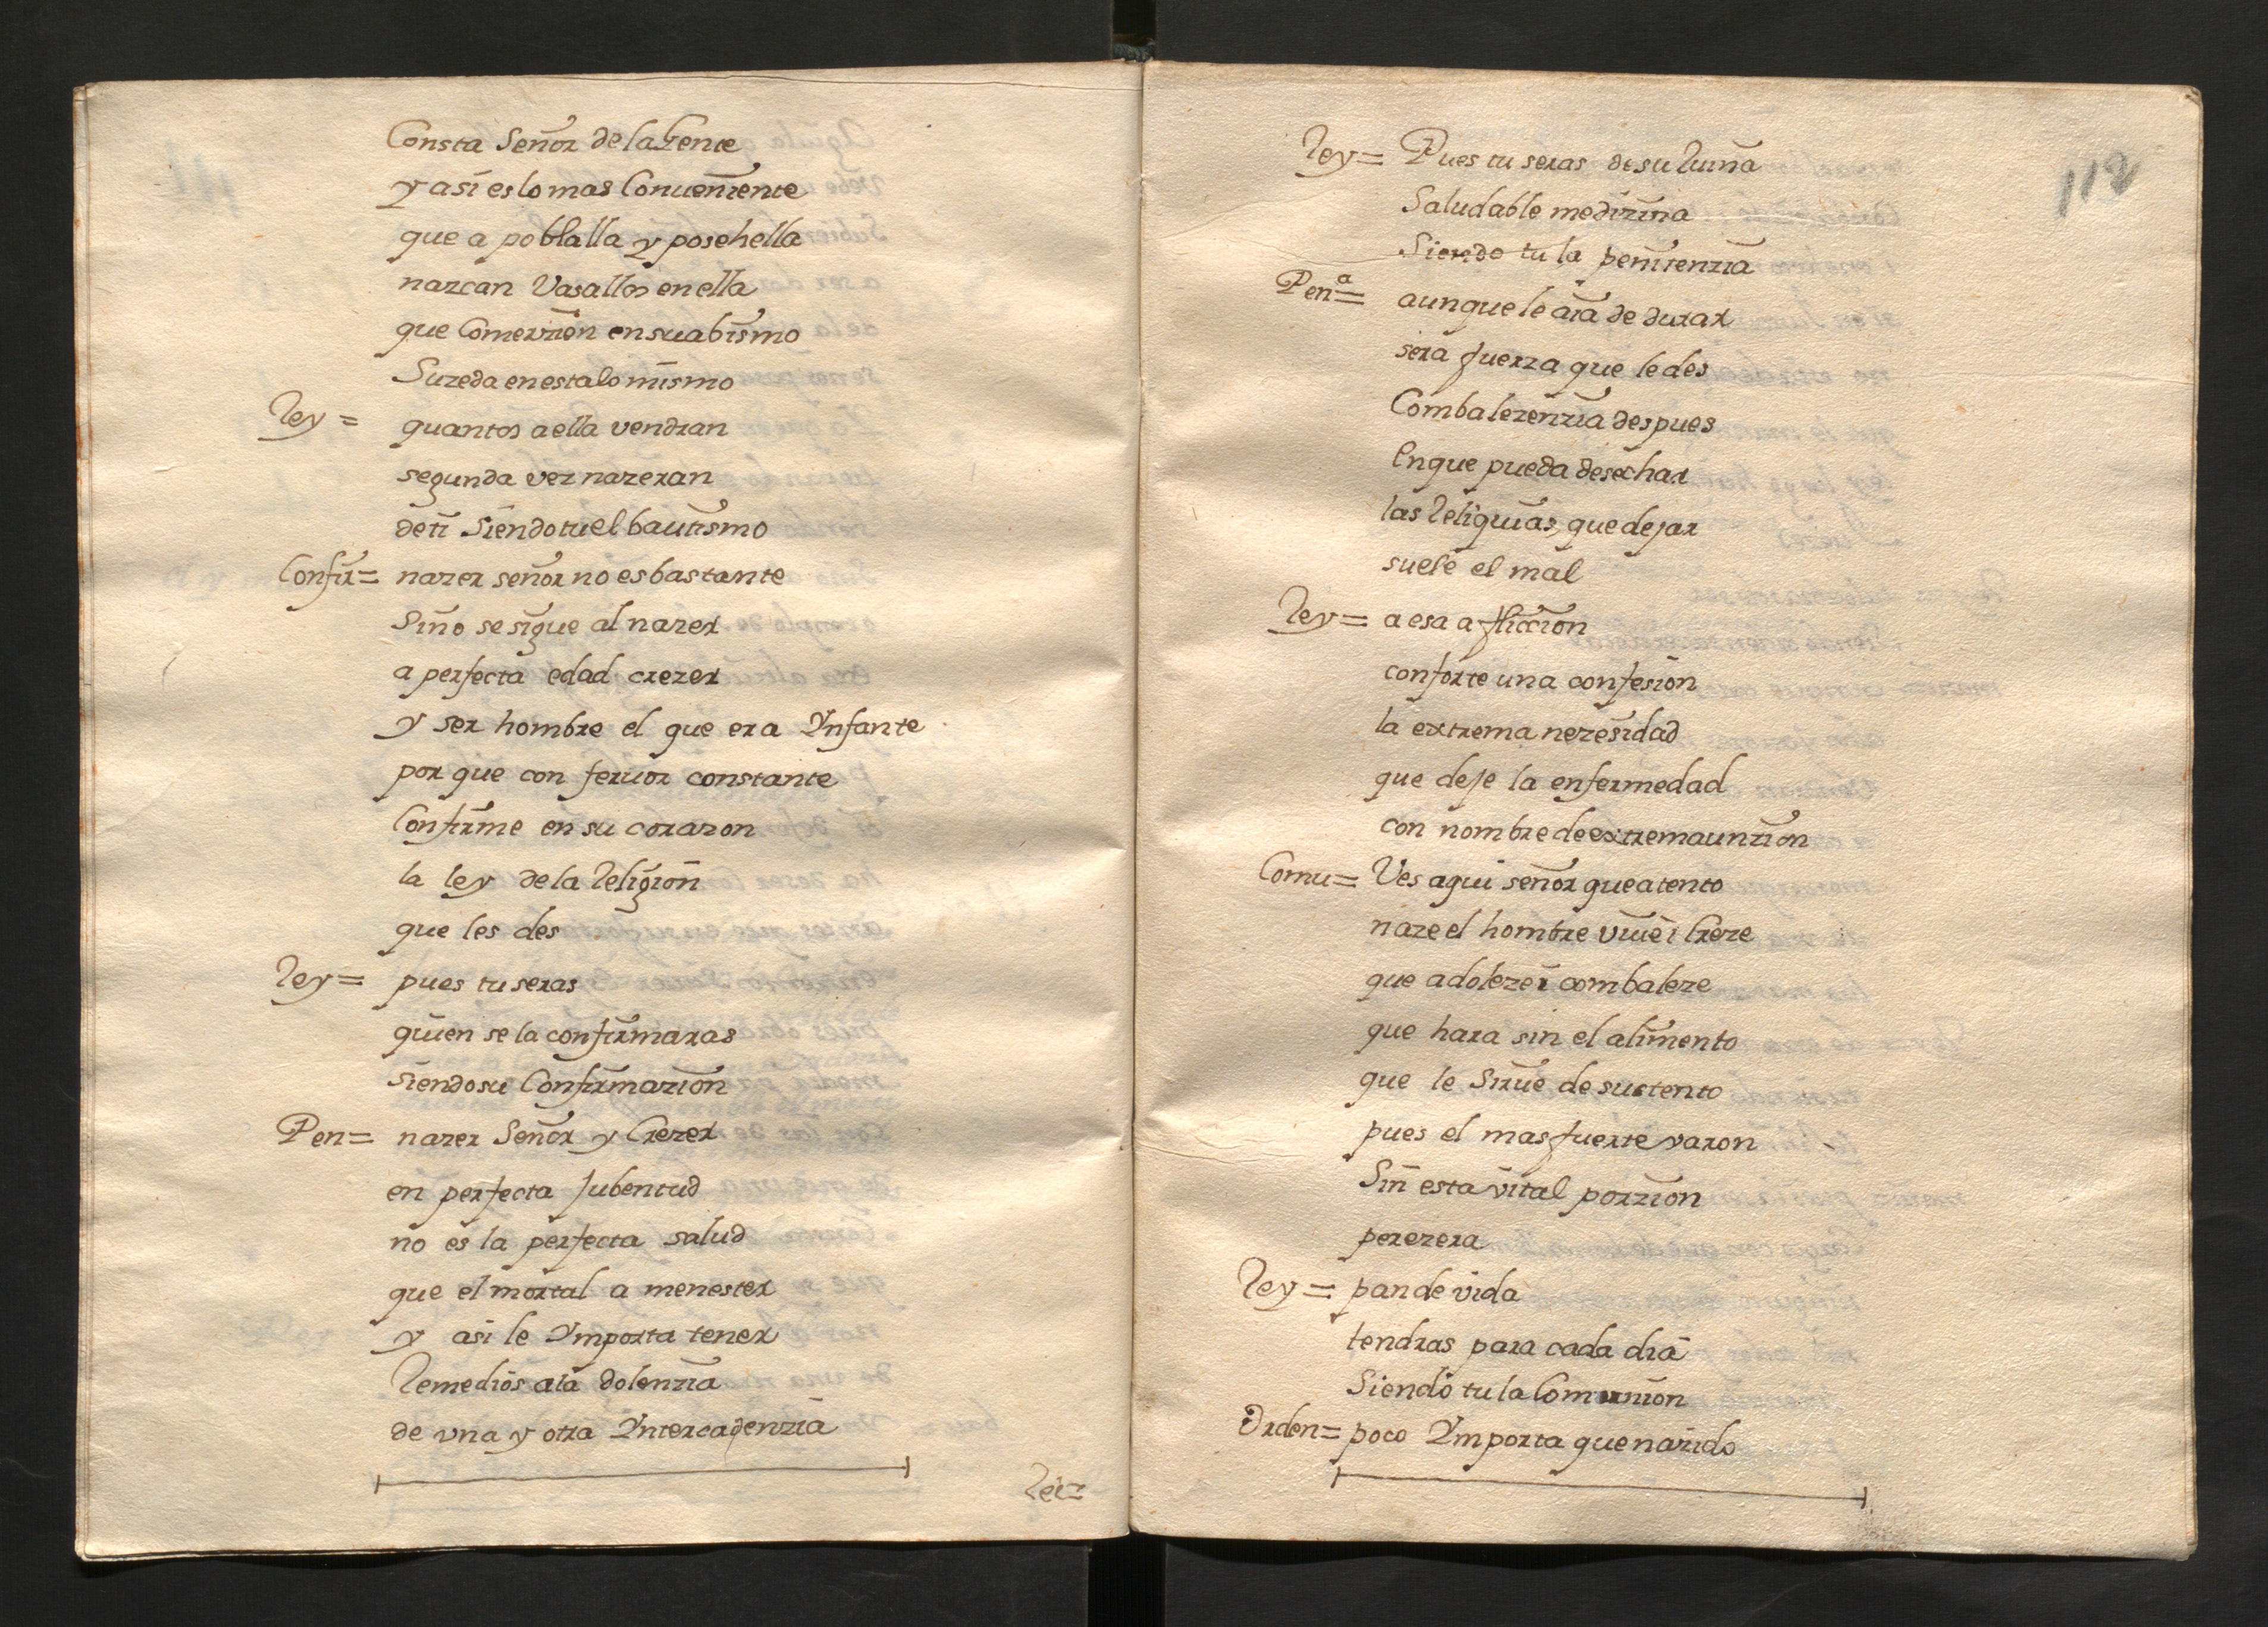 Consta Señor de la Gente
y asi es lo mas Conueniente
que a poblalla y posehella
nazcan Vasallos en ella
que Comerzien en su abismo
Suzeda en esta lo mismo
Rey = quantos a ella vendran
segunda vez nazeran
de ti Siendo tu el bautismo
Confir= nazer señor no es bastante
Sino se sigue al nazer
a perfecta edad crezer
y ser hombre el que era Ynfante
por que con feruor constante
Confirme en su corazon
la ley de la Religion
que les des
Rey = pues tu seras
quien se la confirmaras
siendo su Confirmazion
Pen= nazer Señor y Crezer
en perfecta Jubentud
no es la perfecta salud
que el mortal a menester
y asi le Ymporta tener
Remedios a la dolenzia
de vna y otra Yntercadenzia
Rei=
112
Rey= Pues tu seras de su Ruina
Saludable medizina
Siendo tu la penitenzia
Pen.a= aunque le aia de durar
sera fuerza que le des
Combalezenzia despues
En que pueda desechar
las Reliquias que dejar
suele el mal
Rey= a esa afliccion
conforte una confesion
la extrema nezesidad
que deje la enfermedad
con nombre de extremaunzion
Comu= Ves aqui señor que atento
naze el hombre viue i Creze
que adoleze i combaleze
que hara sin el alimento
que le Sirue de sustento
pues el mas fuerte varon
Sin esta vital porzion
perezera
Rey= pan de vida
tendras para cada dia
Siendo tu la Comunion
Orden= poco Ymporta que nazido